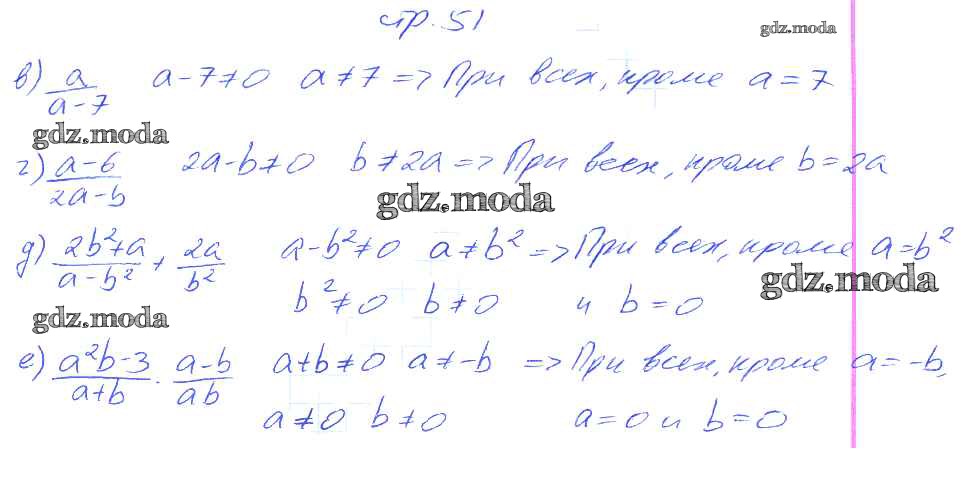 стр. 51
gdz.moda
в) a/(a-7) a-7≠0 a≠7 => При всех, кроме a=7
gdz.moda
г) (a-6)/(2a-b) 2a-b≠0 b≠2a => При всех, кроме b=2a
gdz.moda
д) (2b²+a)/(a-b²) + 2a/b² a-b²≠0 a≠b² => При всех, кроме a=b²
gdz.moda
b²≠0 b≠0 и b=0
gdz.moda
е) (a²b-3)/(a+b) · (a-b)/(ab) a+b≠0 a≠-b => При всех, кроме a=-b,
a≠0 b≠0 a=0 и b=0